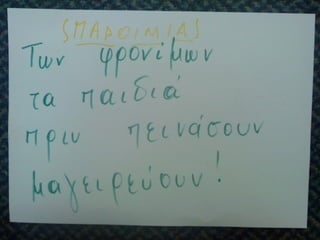 ΠΑΡΟΙΜΙΑ
Των φρονίμων
τα παιδιά
πριν πεινάσουν
μαγειρεύουν!